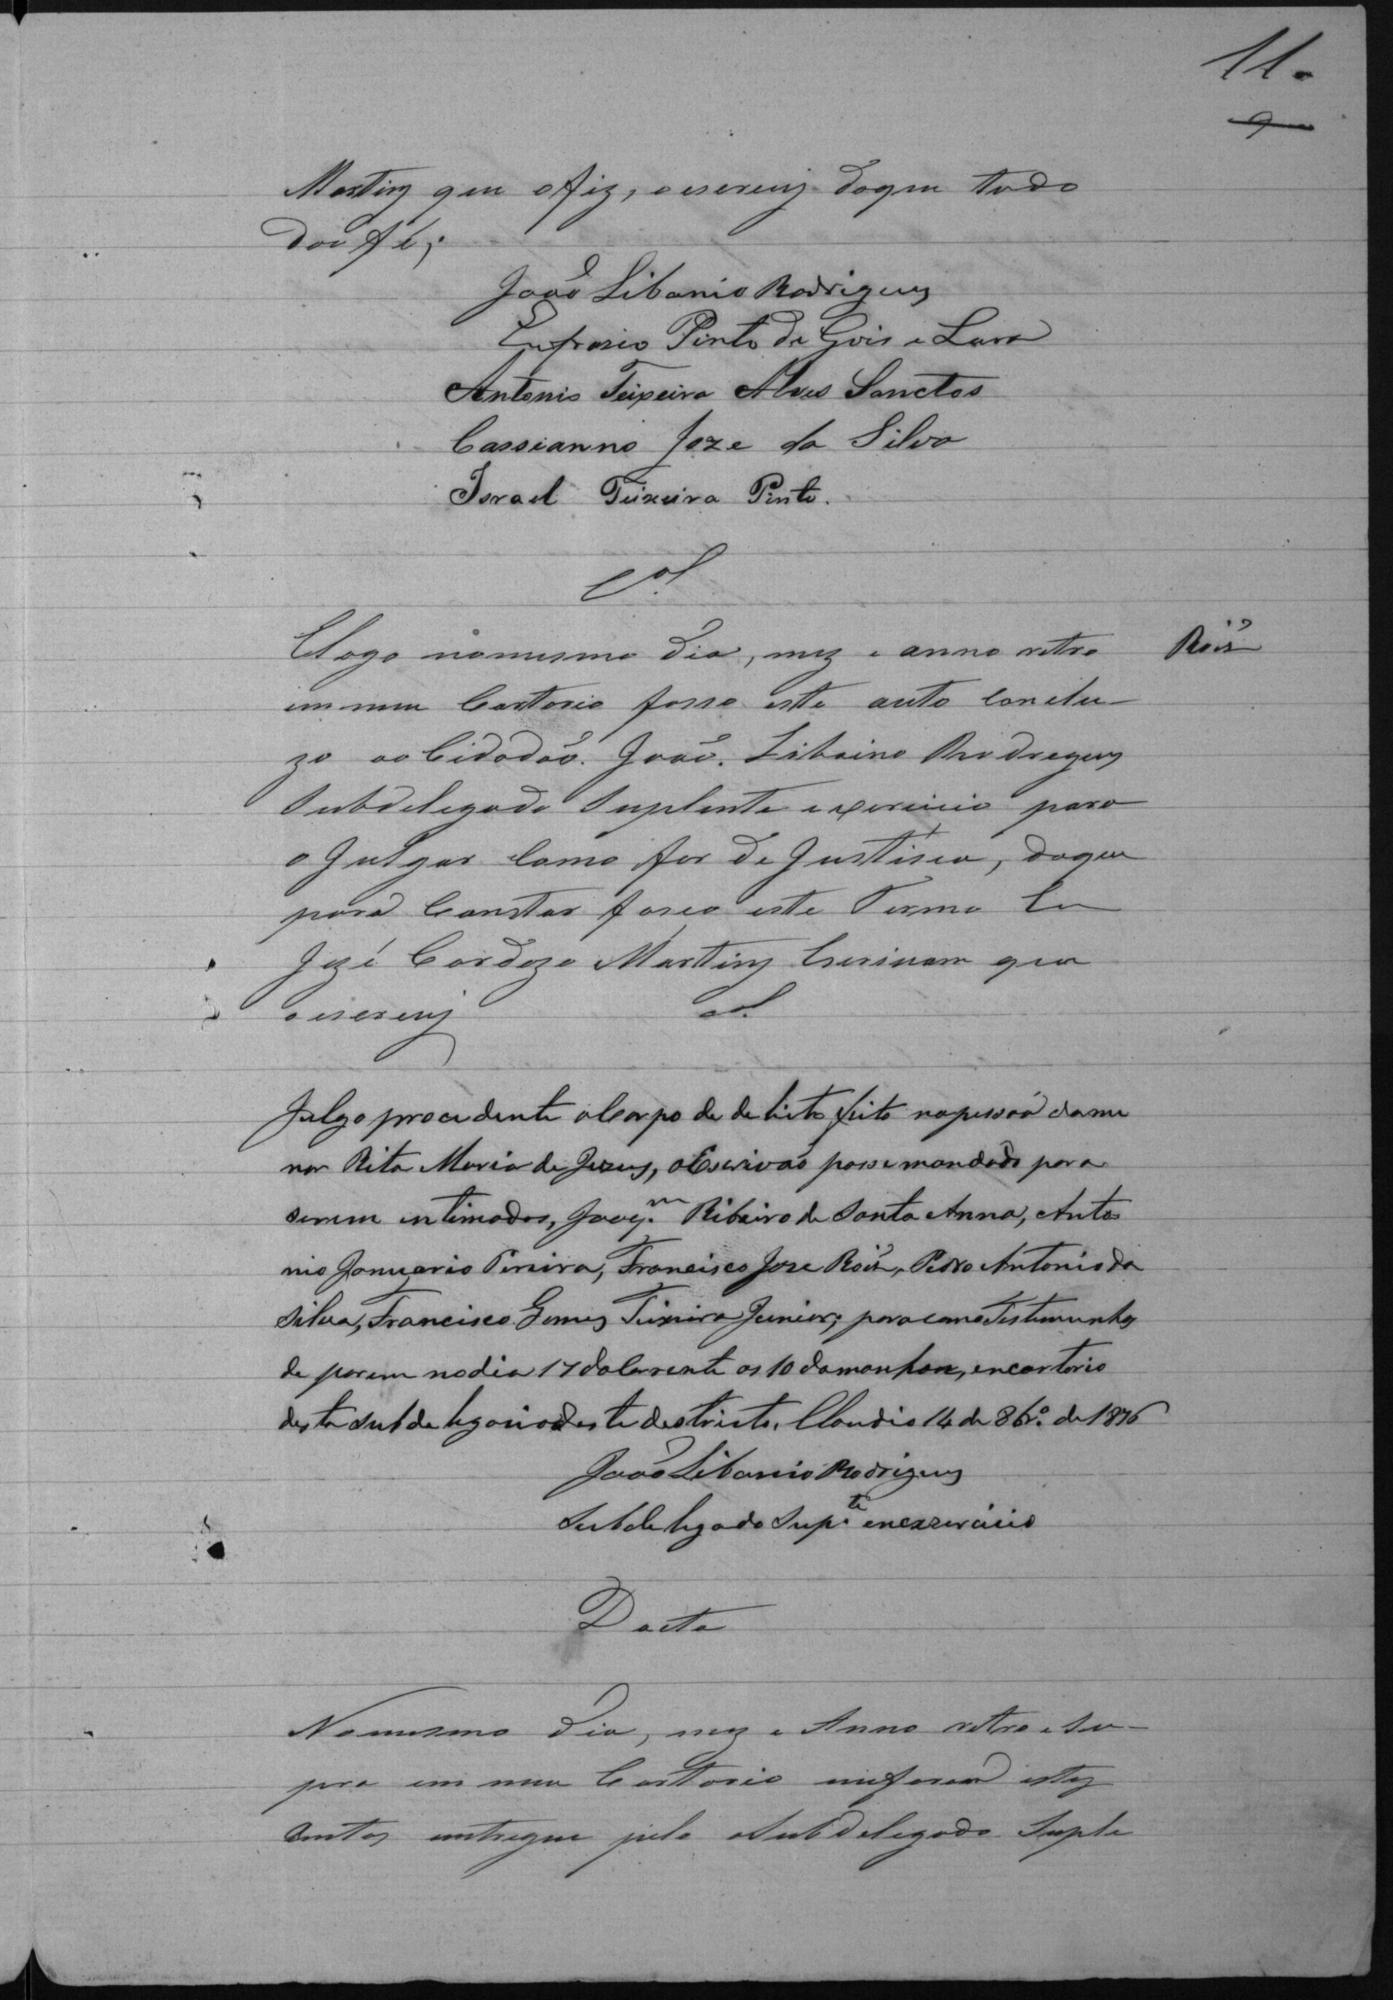 11.
9
Martins que o fiz, e escrevij doque tudo
dou fé;
João Libanio Rodrigues
Eufrasio Pinto de Gois e Lara
Antonio Teixeira Alves Sanctos
Cassianno Joze da Silva
Israel Teixeira Pinto.
Col.
Elogo nomesmo dia, mez e anno retro
emmeu Cartorio fasso este auto Conclu-
zo ao Cidadão. João. Libaino Rodregues
Subdelegado Suplente exercicio para
o Julgar Como for de Justisea, doque
para Constar fasco este Termo Eu
Jozé Cardozo Martins Escrivam que
o escrevij
Col.
Rois
Julgo procedente o Corpo de delicto feito napessoa dame
nor Rita Maria de Jezus, o Escrivão passe mandado para
serem intimados, Joaqm. Ribeiro de Santa Anna, Anto
nio Januario Pereira, Francisco Jose Rois, Pedro Antonio da
Silva, Francisco Gomes Teixeira Junior; para como Testemunhas
de porem nodia 17 do Corrente as 10 damanhan, encartorio
desta subdelegacia deste destricto. Claudio 14 de 8br.o de 1876
João Libanio Rodrigues
Subdelegado Supte. enexzercicio
Dacta
Nomesmo dia, mez e Anno retro e Su-
pra em meu Cartorio mi forão estes
autos entregue pelo o Subdelegado Suple